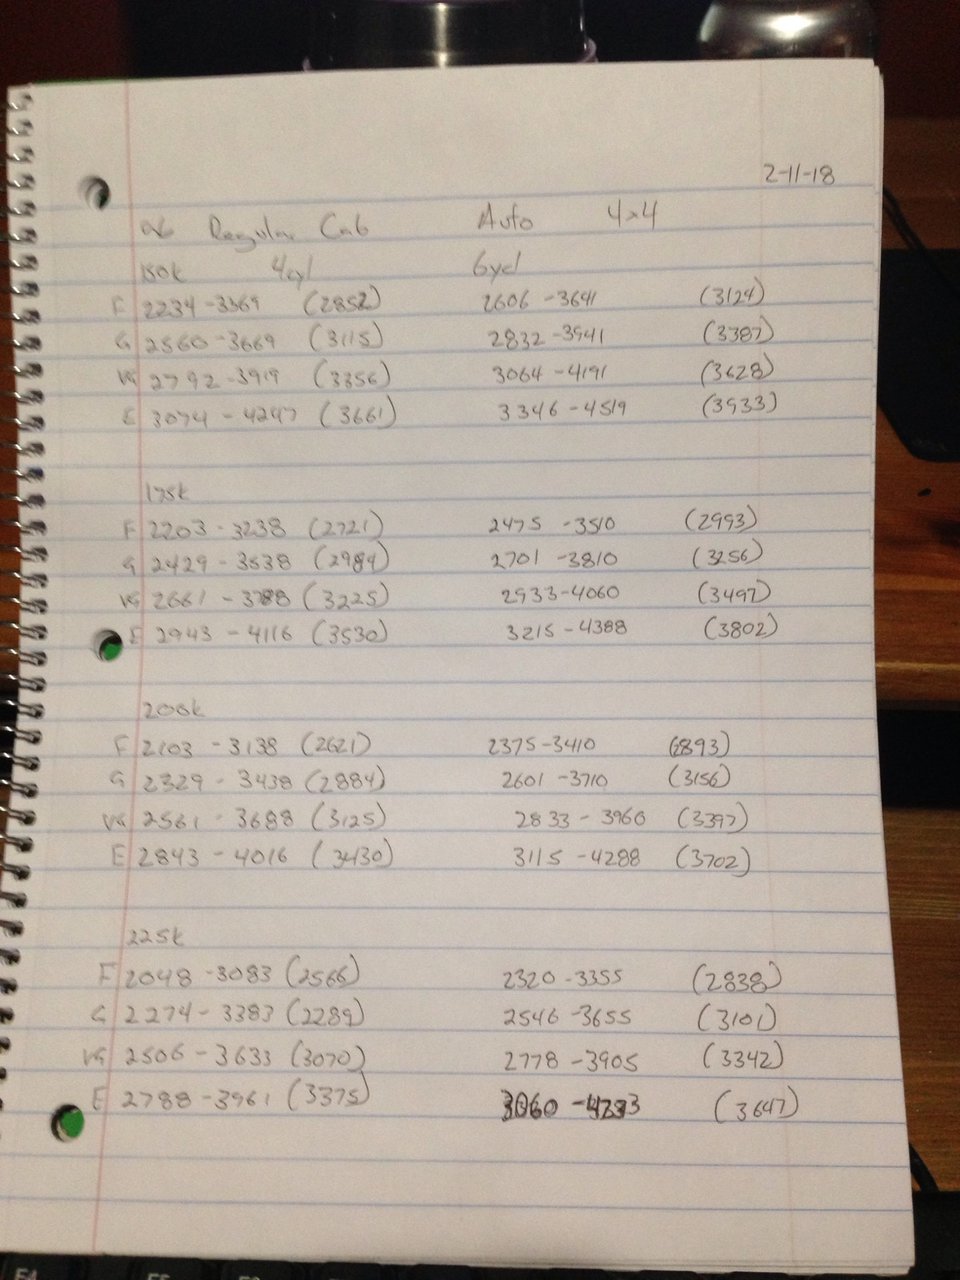 2-11-18
06 Regular Cab Auto 4x4
150k 4cyl 6ycl
F 2234-3369 (2852) 2606-3641 (3124)
G 2560-3669 (3115) 2832-3941 (3387)
VG 2792-3919 (3356) 3064-4191 (3628)
E 3074-4247 (3661) 3346-4519 (3933)
175k
F 2203-3238 (2721) 2475-3510 (2993)
G 2429-3538 (2984) 2701-3810 (3256)
VG 2661-3788 (3225) 2933-4060 (3497)
E 2943-4116 (3530) 3215-4388 (3802)
200k
F 2103-3138 (2621) 2375-3410 (2893)
G 2329-3438 (2884) 2601-3710 (3156)
VG 2561-3688 (3125) 2833-3960 (3397)
E 2843-4016 (3430) 3115-4288 (3702)
225k
F 2048-3083 (2566) 2320-3355 (2838)
G 2274-3383 (2289) 2546-3655 (3101)
VG 2506-3633 (3070) 2778-3905 (3342)
E 2788-3961 (3375) 3060-4233 (3647)